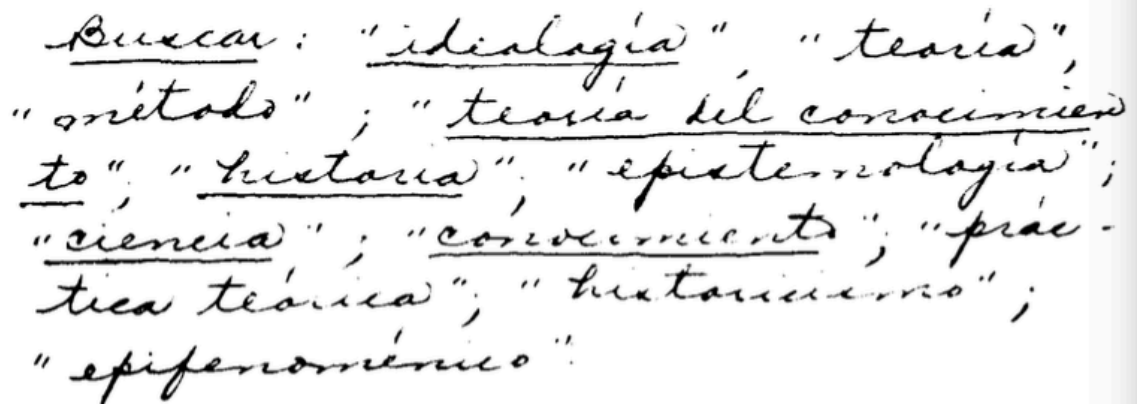 Buscar: "ideología", "teoría",
"método"; "teoría del conocimien
to"; "historia"; "epistemología";
"ciencia"; "conocimiento"; "prác-
tica teórica"; "historicismo";
"epifenoménico".